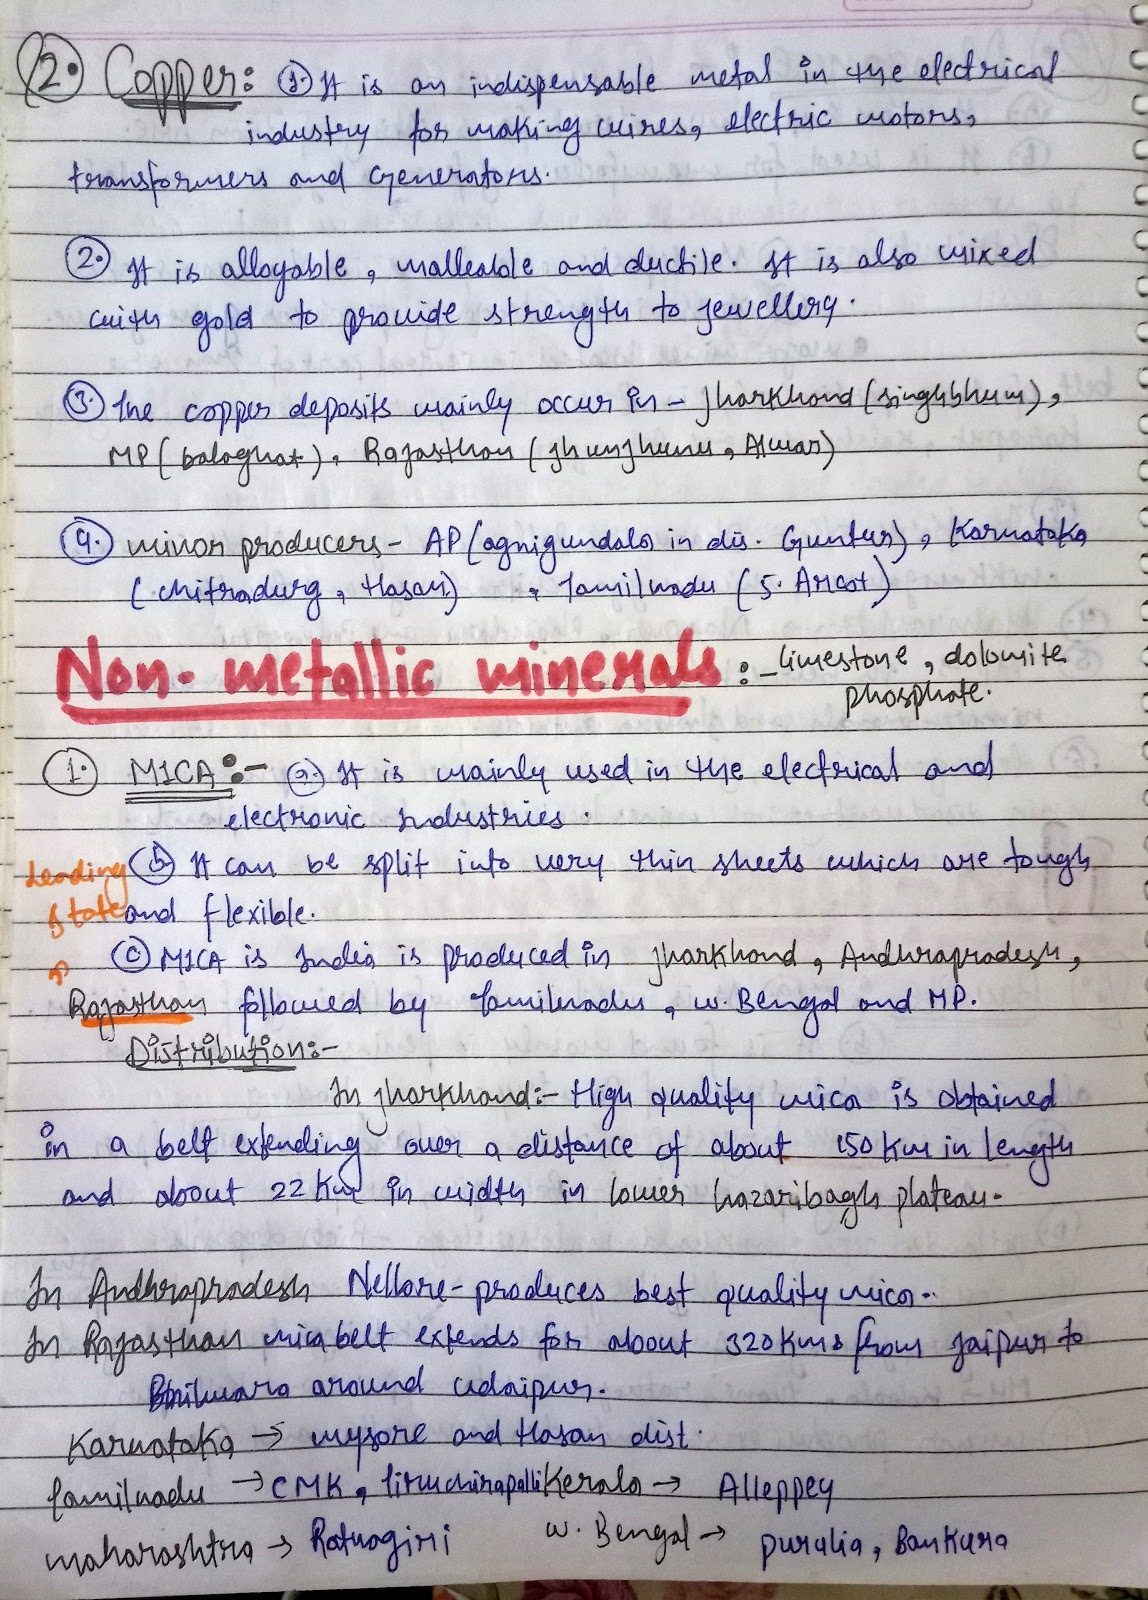 2. Copper: 1. It is an indispensable metal in the electrical
industry for making wires, electric motors,
transformers and Generators.
2. It is alloyable, malleable and ductile. It is also mixed
with gold to provide strength to jewellery.
3. The copper deposits mainly occur in - Jharkhand (singhbhum),
MP (balaghat), Rajasthan (jhunjhunu, Alwar)
4. minor producers - AP (agnigundala in dis. Guntur), Karnataka
(chitradurg, Hasan) , Tamilnadu (S. Arcot)
Non-metallic minerals :- Limestone, dolomite
phosphate.
1. MICA :- a. It is mainly used in the electrical and
electronic Industries.
b. It can be split into very thin sheets which are tough
Leading
state
and flexible.
c MICA is India is produced in Jharkhand, Andhrapradesh,
Rajasthan followed by Tamilnadu, W. Bengal and MP.
Distribution:-
In Jharkhand:- High quality mica is obtained
in a belt extending over a distance of about 150 Km in length
and about 22 Km in width in lower hazaribagh plateau.
In Andhrapradesh Nellore - produces best quality mica.
In Rajasthan mica belt extends for about 320 Kms from Jaipur to
Bhilwara around udaipur.
Karnataka → mysore and Hasan dist.
Tamilnadu → CMK, Tiruchirapalli Kerala → Alleppey
maharashtra → Ratnagiri W. Bengal → puralia, Bankura